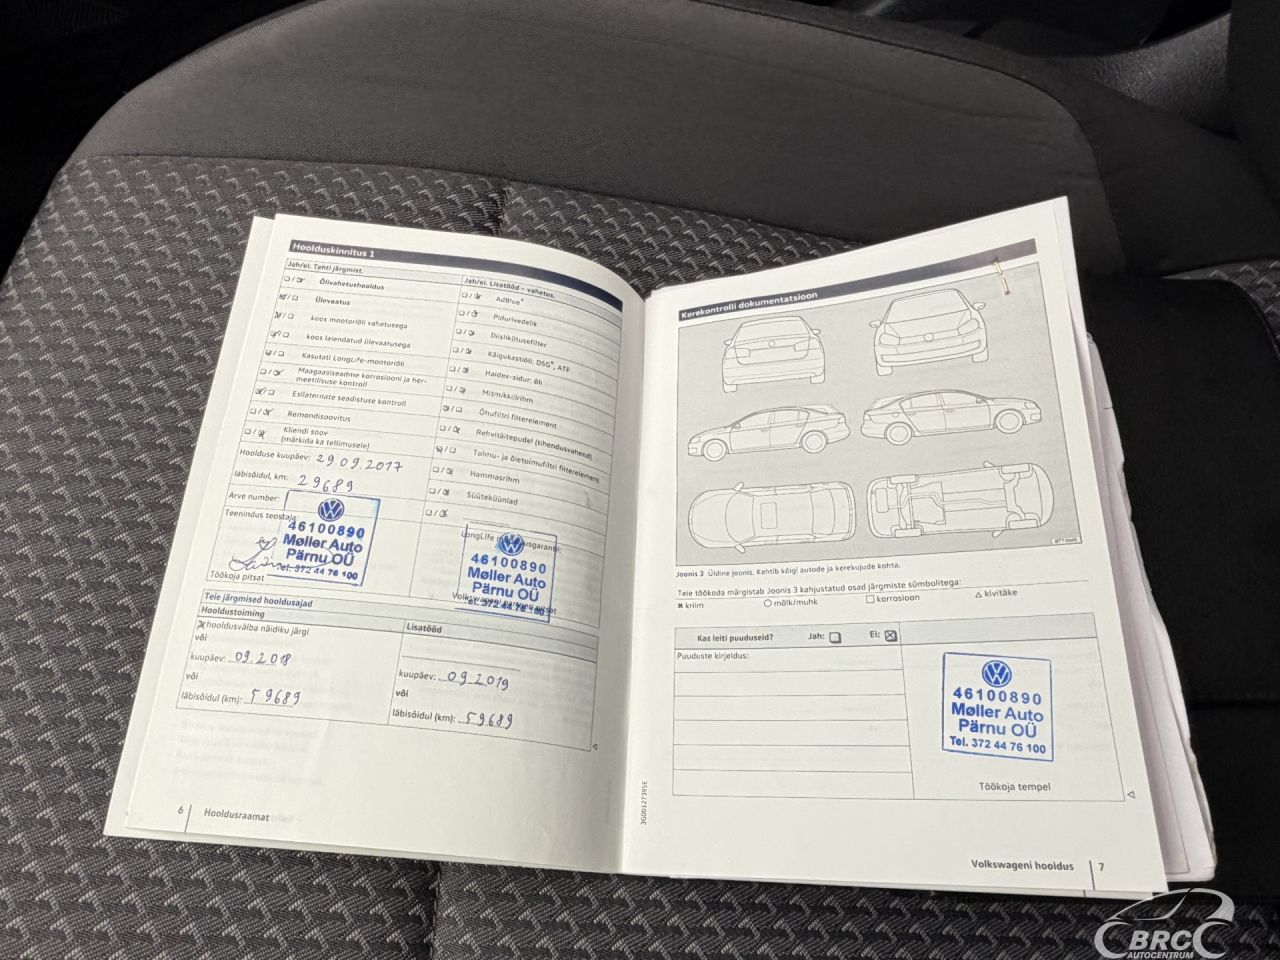 Hoolduskinnitus 1
Jah/ei. Tehti järgmist.
Õlivahetushooldus
Ülevaatus
koos mootoriõli vahetusega
koos laiendatud ülevaatusega
Kasutati LongLife-mootoriõli
Maagaasiseadme korrosiooni ja her-
meetilisuse kontroll
Esilaternate seadistuse kontroll
Remondisoovitus
Kliendi soov
(märkida ka tellimusele)
Hoolduse kuupäev: 29.09.2017
läbisõidul, km: 29689
Arve number:
Teenindus teostaja:
46100890
Møller Auto
Pärnu OÜ
Tel. 372 44 76 100
Töökoja pitsat
Jah/ei. Lisatööd – vahetus.
AdBlue®
Pidurivedelik
Diislikütusefilter
Käigukastiõli: DSG®, ATF
Haldex-sidur: õli
Mitmikkiilrihm
Õhufiltri filterelement
Rehvitäitepudel (tihendusvahend)
Tolmu- ja õietolmufiltri filterelement
Hammasrihm
Süüteküünlad
46100890
Møller Auto
Pärnu OÜ
Tel. 372 44 76 100
Teie järgmised hooldusajad
Hooldustoiming
hooldusvälba näidiku järgi
või
kuupäev: 09.2018
või
läbisõidul (km): 59689
Lisatööd
kuupäev: 09.2019
või
läbisõidul (km): 59689
6 Hooldusraamat
Kerekontrolli dokumentatsioon
Joonis 3 Üldine joonis. Kehtib kõigi autode ja kerekujude kohta.
Teie töökoda märgistab Joonis 3 kahjustatud osad järgmiste sümbolitega:
kriim mõlk/muhk korrosioon kivitäke
Kas leiti puuduseid? Jah: Ei:
Puuduste kirjeldus:
46100890
Møller Auto
Pärnu OÜ
Tel. 372 44 76 100
Töökoja tempel
Volkswageni hooldus 7
BRC
AUTOCENTRUM